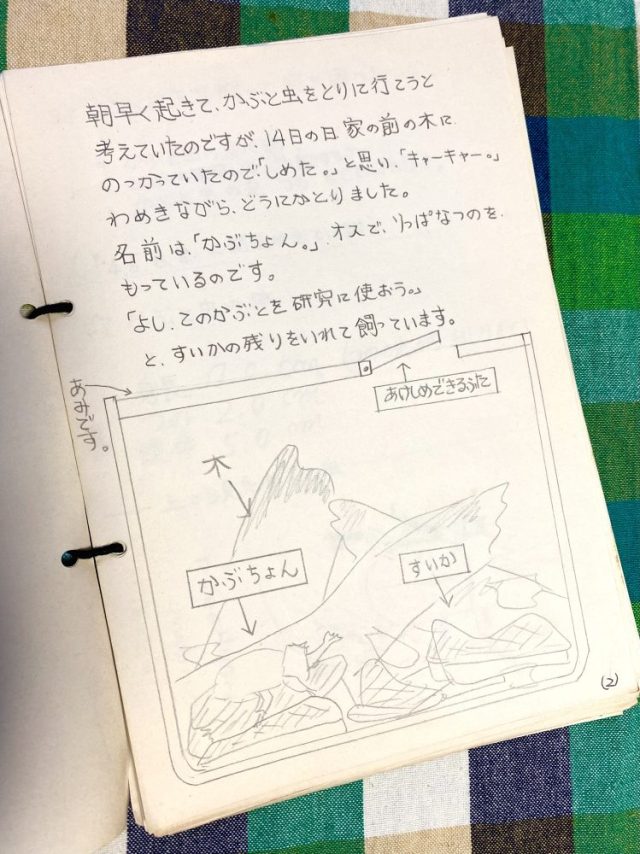 朝早く起きて、かぶと虫をとりに行こうと
考えていたのですが、14日の日、家の前の木に
のっかっていたので「しめた。」と思い、「キャーキャー。」
わめきながら、どうにかとりました。
名前は、「かぶちょん。」、オスで、りっぱなつのを、
もっているのです。
「よし、このかぶとを研究に使おう。」
と、すいかの残りをいれて飼っています。
あみです。
あけしめできるふた
木
かぶちょん
すいか
(2)